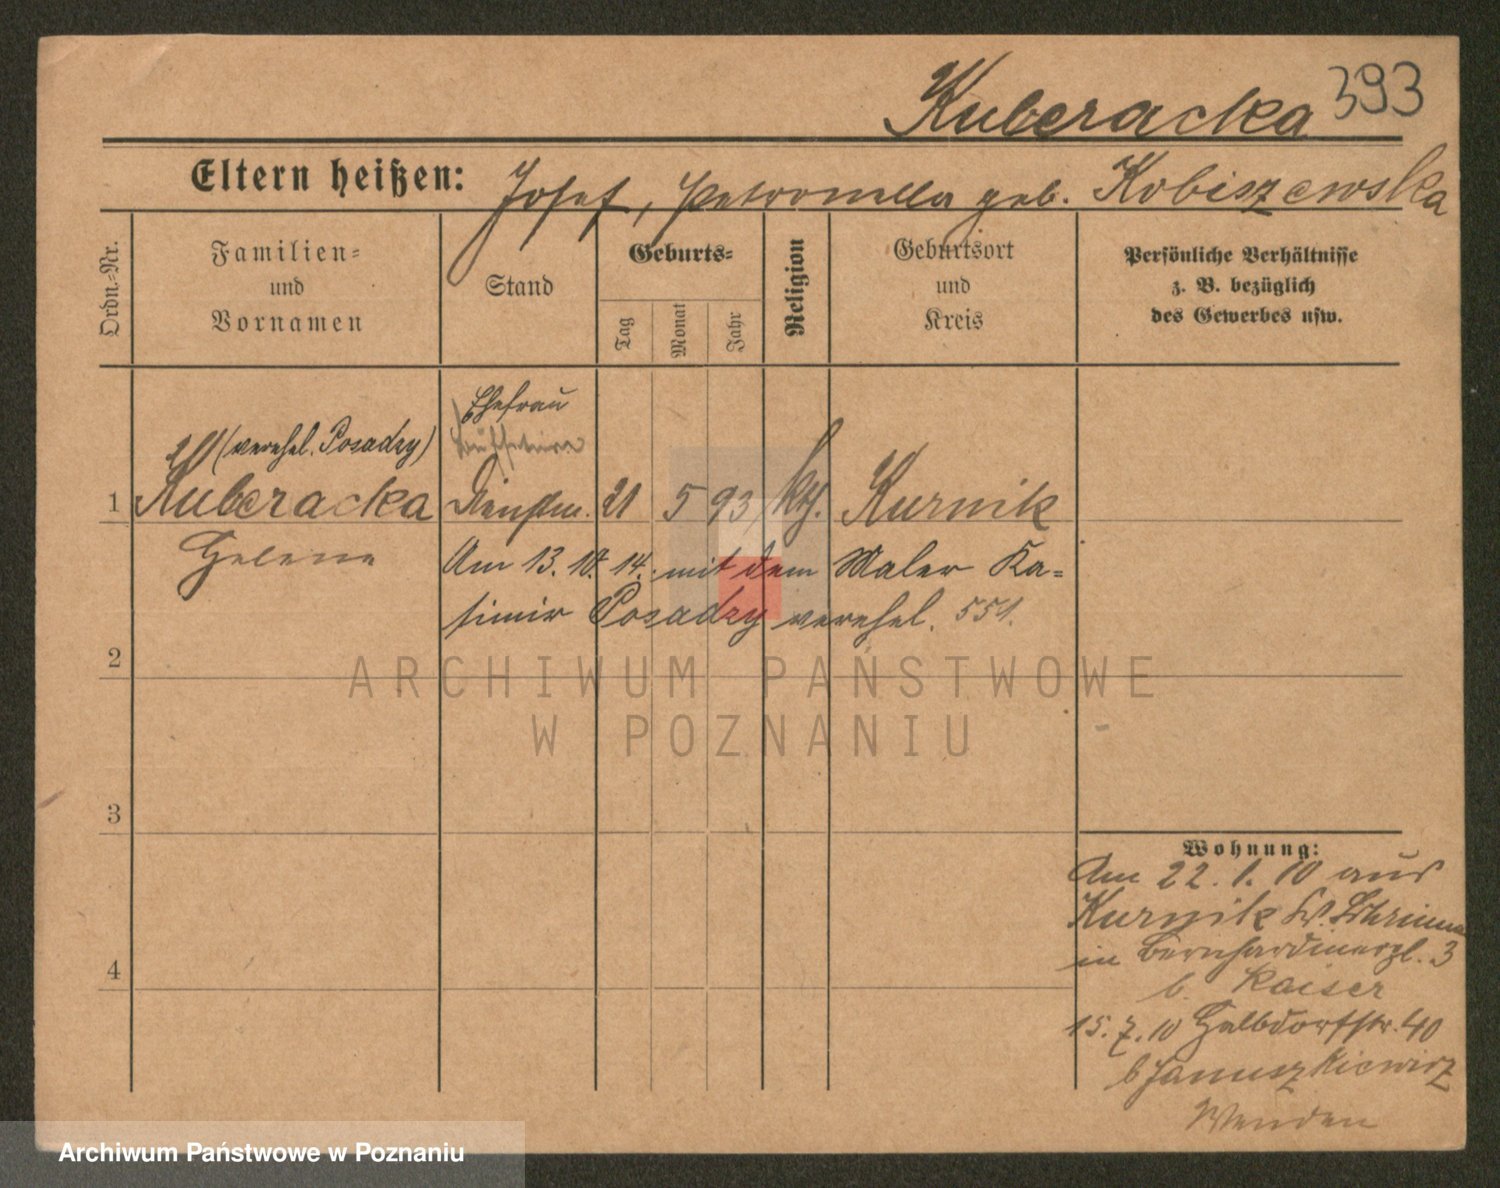 Kuberacka 393
Eltern heißen: Josef, Petronella geb. Kobiszewska
Ordn.-Nr.
Familien-
und
Vornamen
Stand
Geburts-
Tag
Monat
Jahr
Religion
Geburtsort
und
Kreis
Persönliche Verhältnisse
z. B. bezüglich
des Gewerbes usw.
Ehefrau
(verehel. Posadzy)
1 Kuberacka Dienstm. 21 5 93 kth. Kurnik
Helene
Am 13. 10. 14. mit dem Maler Ka-
simir Posadzy verehel. 551.
2
3
4
Wohnung:
Am 22. 1. 10 aus
Kurnik Kr. Schrimm
in Bernhardinerpl. 3
b. Kaiser
15. 7. 10 Halbdorfstr. 40
b Januszkiewicz
Wenden
ARCHIWUM PAŃSTWOWE
W POZNANIU
Archiwum Państwowe w Poznaniu